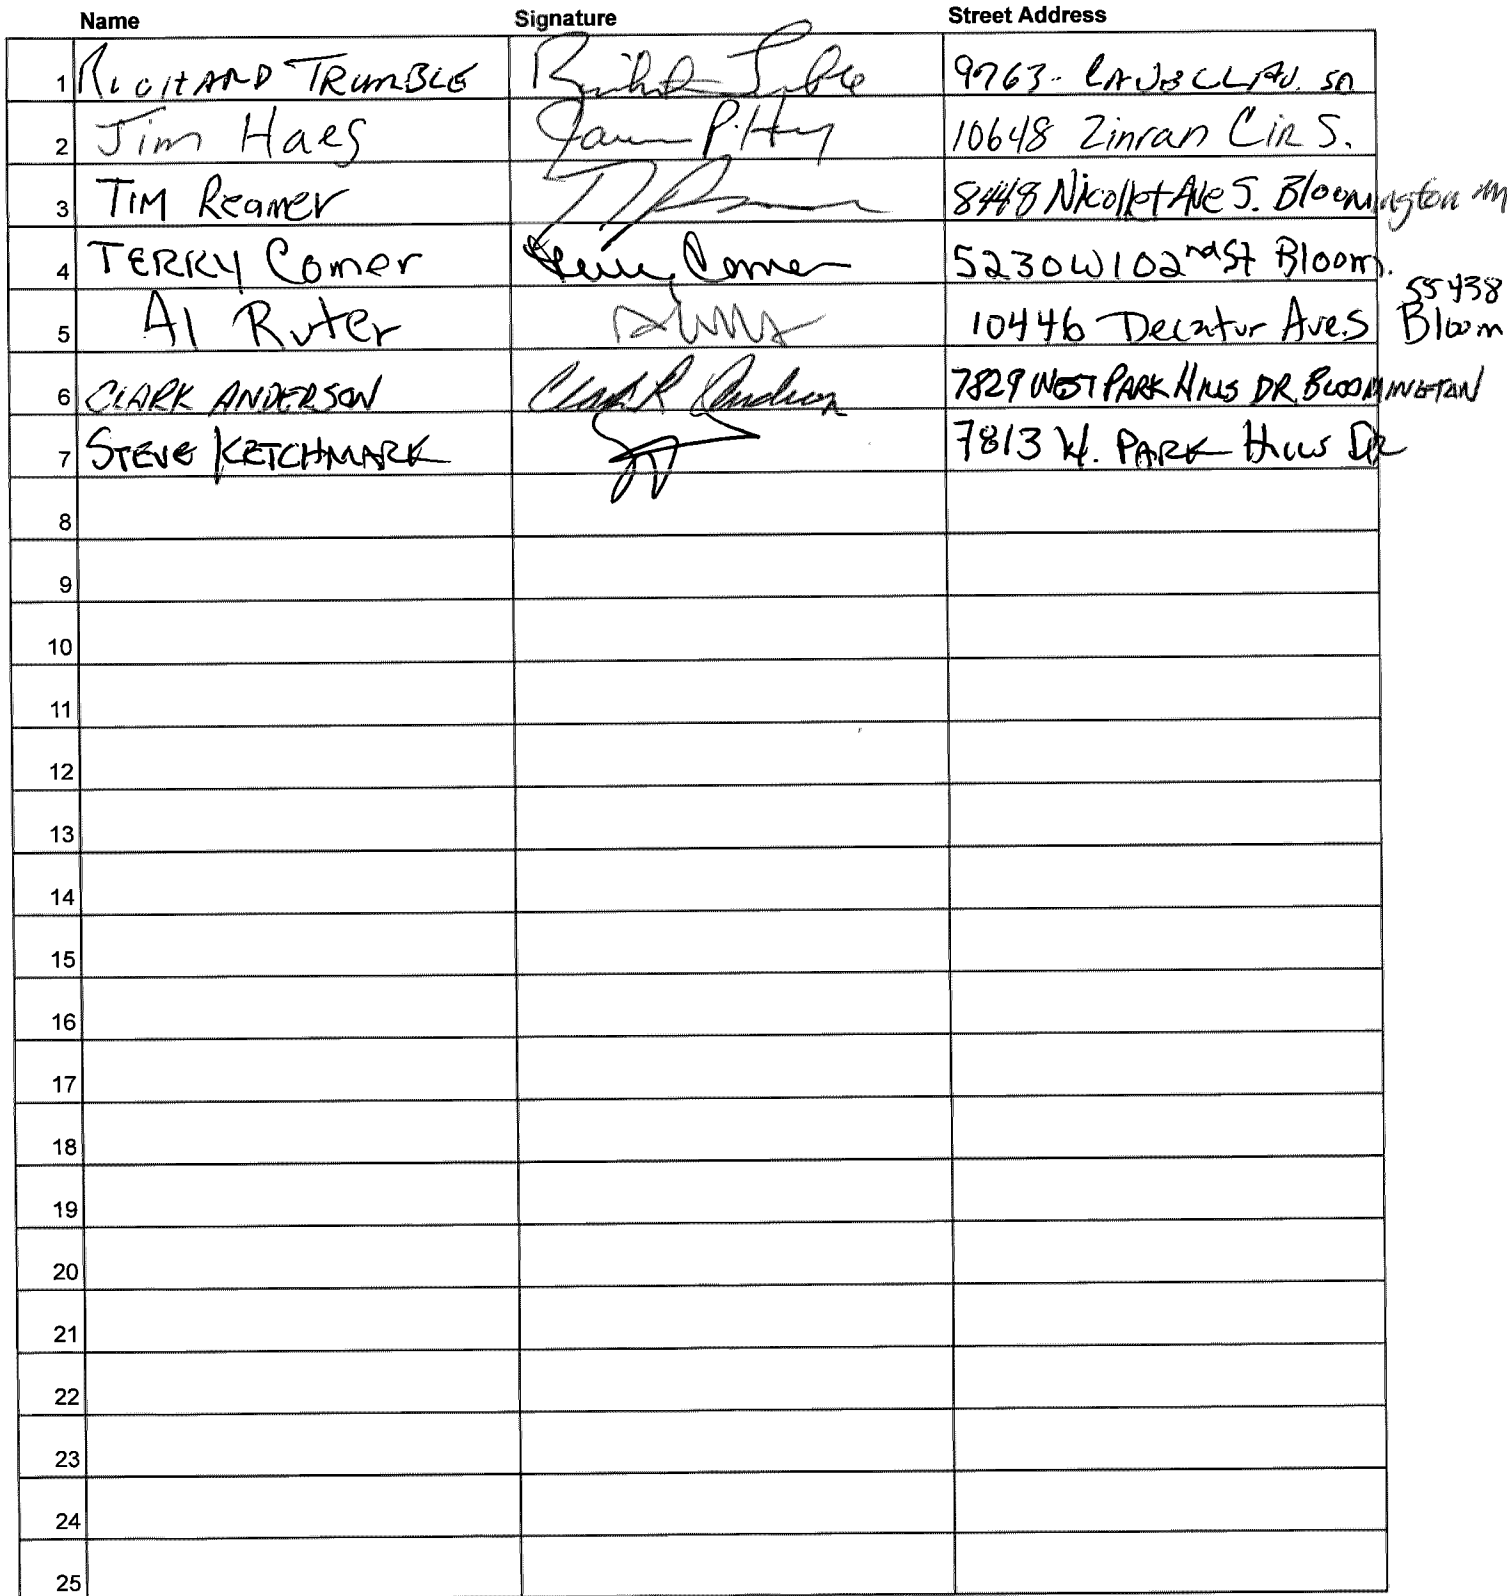 Name Signature Street Address
1 RICHARD TRUMBLE 9763- AV. SO
2 Jim Haes James P. Hy 10648 Zinran Cir S.
3 TIM Reamer 8448 Nicollet Ave S. Bloomington MN
4 TERRY Comer Terry Comer 5230 W 102nd St Bloom.
55438
5 Al Ruter 10446 Decatur Ave S Bloom
6 CLARK ANDERSON Clark Anderson 7829 WEST PARK HILLS DR. BLOOMINGTON
7 STEVE KETCHMARK 7813 W. PARK HILLS DR
8
9
10
11
12
13
14
15
16
17
18
19
20
21
22
23
24
25